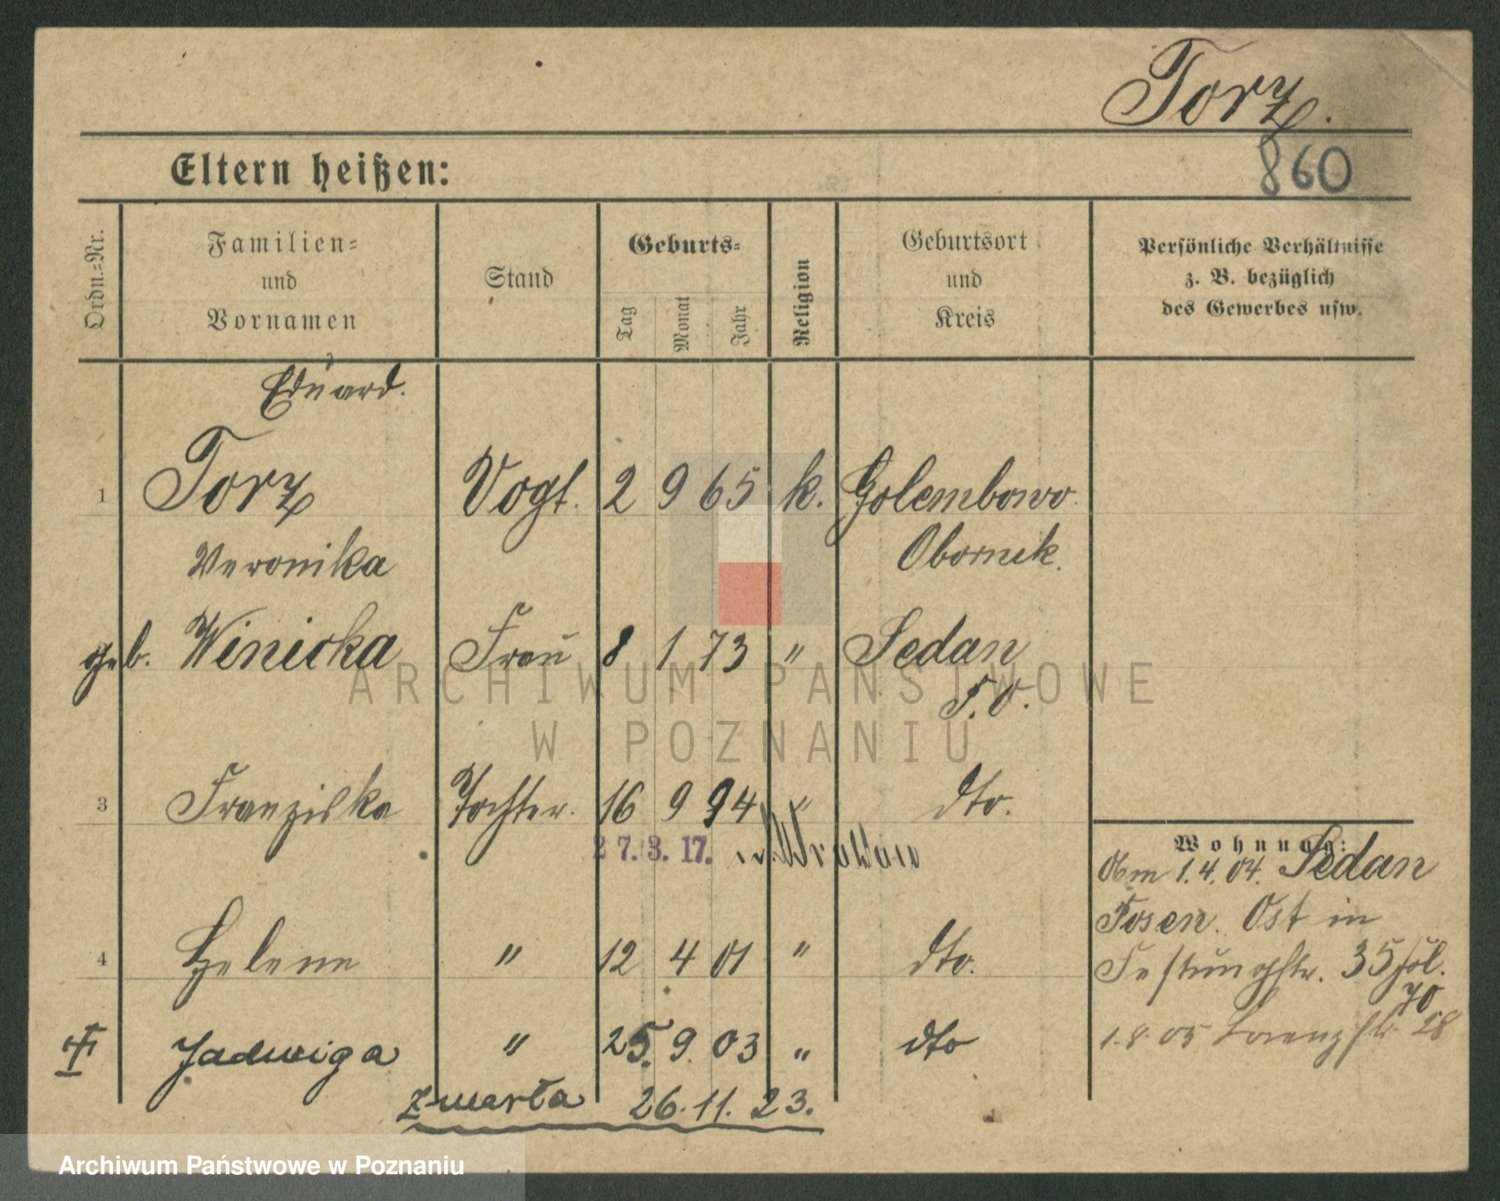 Torz.
860
Eltern heißen:
Ordn.=Nr.
Familien=
und
Vornamen
Stand
Geburts=
Tag
Monat
Jahr
Religion
Geburtsort
und
Kreis
Persönliche Verhältnisse
z. B. bezüglich
des Gewerbes usw.
Eduard.
1 Torz Vogt. 2 9 65 k. Golembowo
Obornik.
Veronika
geb. Winicka Frau 8 1 73 " Sedan
P.O.
3 Franziska Tochter. 16 9 94 " dto.
27.3.17.
4 Helene " 12 4 01 " dto.
Jadwiga " 25. 9. 03 " dto
zmarła 26.11.23.
Wohnung:
1.4.04. Sedan
Posen. Ost in
Festungstr. 35
70
ARCHIWUM PAŃSTWOWE
W POZNANIU
Archiwum Państwowe w Poznaniu